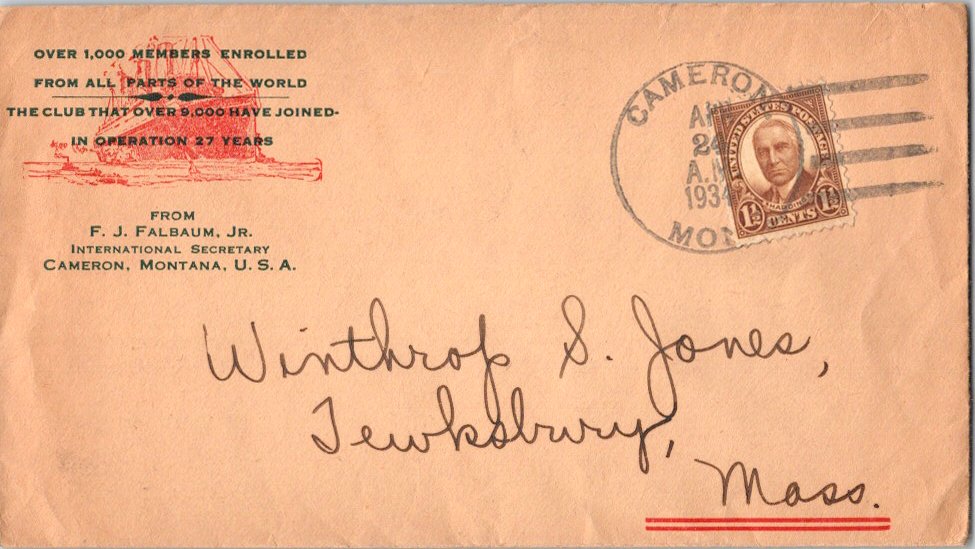 OVER 1,000 MEMBERS ENROLLED
FROM ALL PARTS OF THE WORLD
THE CLUB THAT OVER 9,000 HAVE JOINED-
IN OPERATION 27 YEARS
FROM
F. J. FALBAUM, JR.
INTERNATIONAL SECRETARY
CAMERON, MONTANA, U. S. A.
CAMERON
A.M
1934
MON
UNITED STATES POSTAGE
HARDING
1½ CENTS 1½
Winthrop S. Jones,
Tewksbury,
Mass.